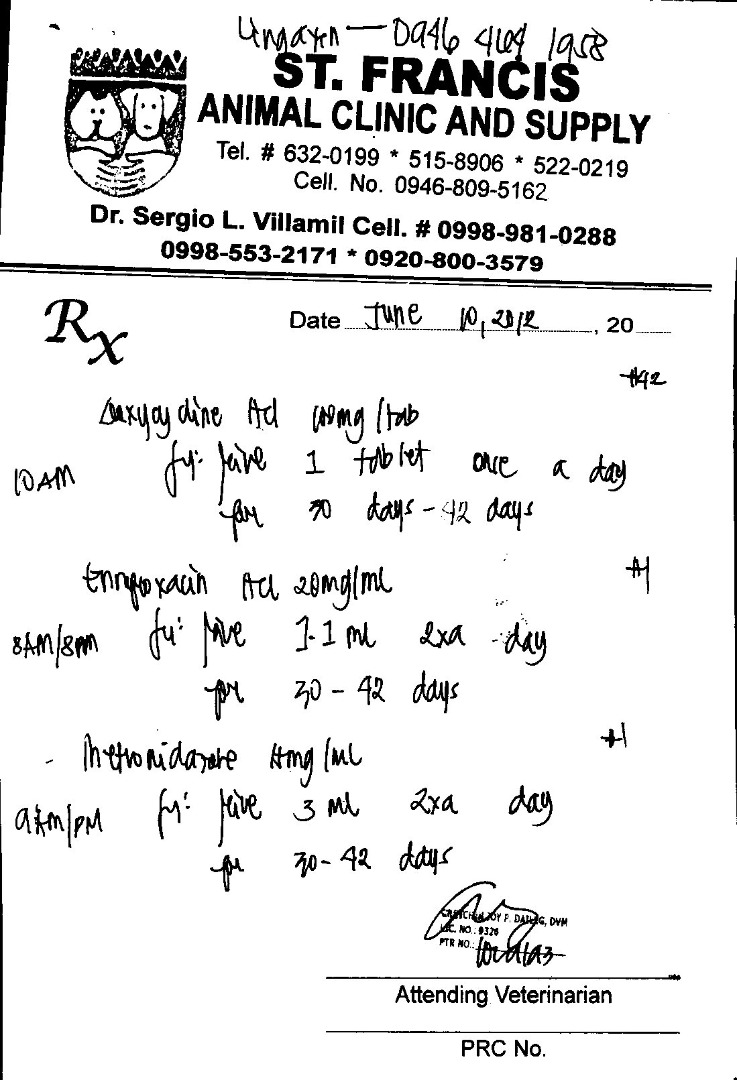 Lingayen — 0946 464 1958
ST. FRANCIS
ANIMAL CLINIC AND SUPPLY
Tel. # 632-0199 * 515-8906 * 522-0219
Cell. No. 0946-809-5162
Dr. Sergio L. Villamil Cell. # 0998-981-0288
0998-553-2171 * 0920-800-3579
Rx
Date June 10, 2012, 20
#42
Doxycycline Hcl 100mg/tab
10AM give 1 tablet once a day
for 30 days - 42 days
Enrofloxacin Hcl 20mg/ml #1
8AM/8PM give 1.1 ml 2xa day
for 30 - 42 days
- Metronidazole mg/ml #1
9AM/PM give 3 ml 2xa day
for 30-42 days
JOY P. DVM
LIC. NO.: 9326
PTR NO.:
Attending Veterinarian
PRC No.